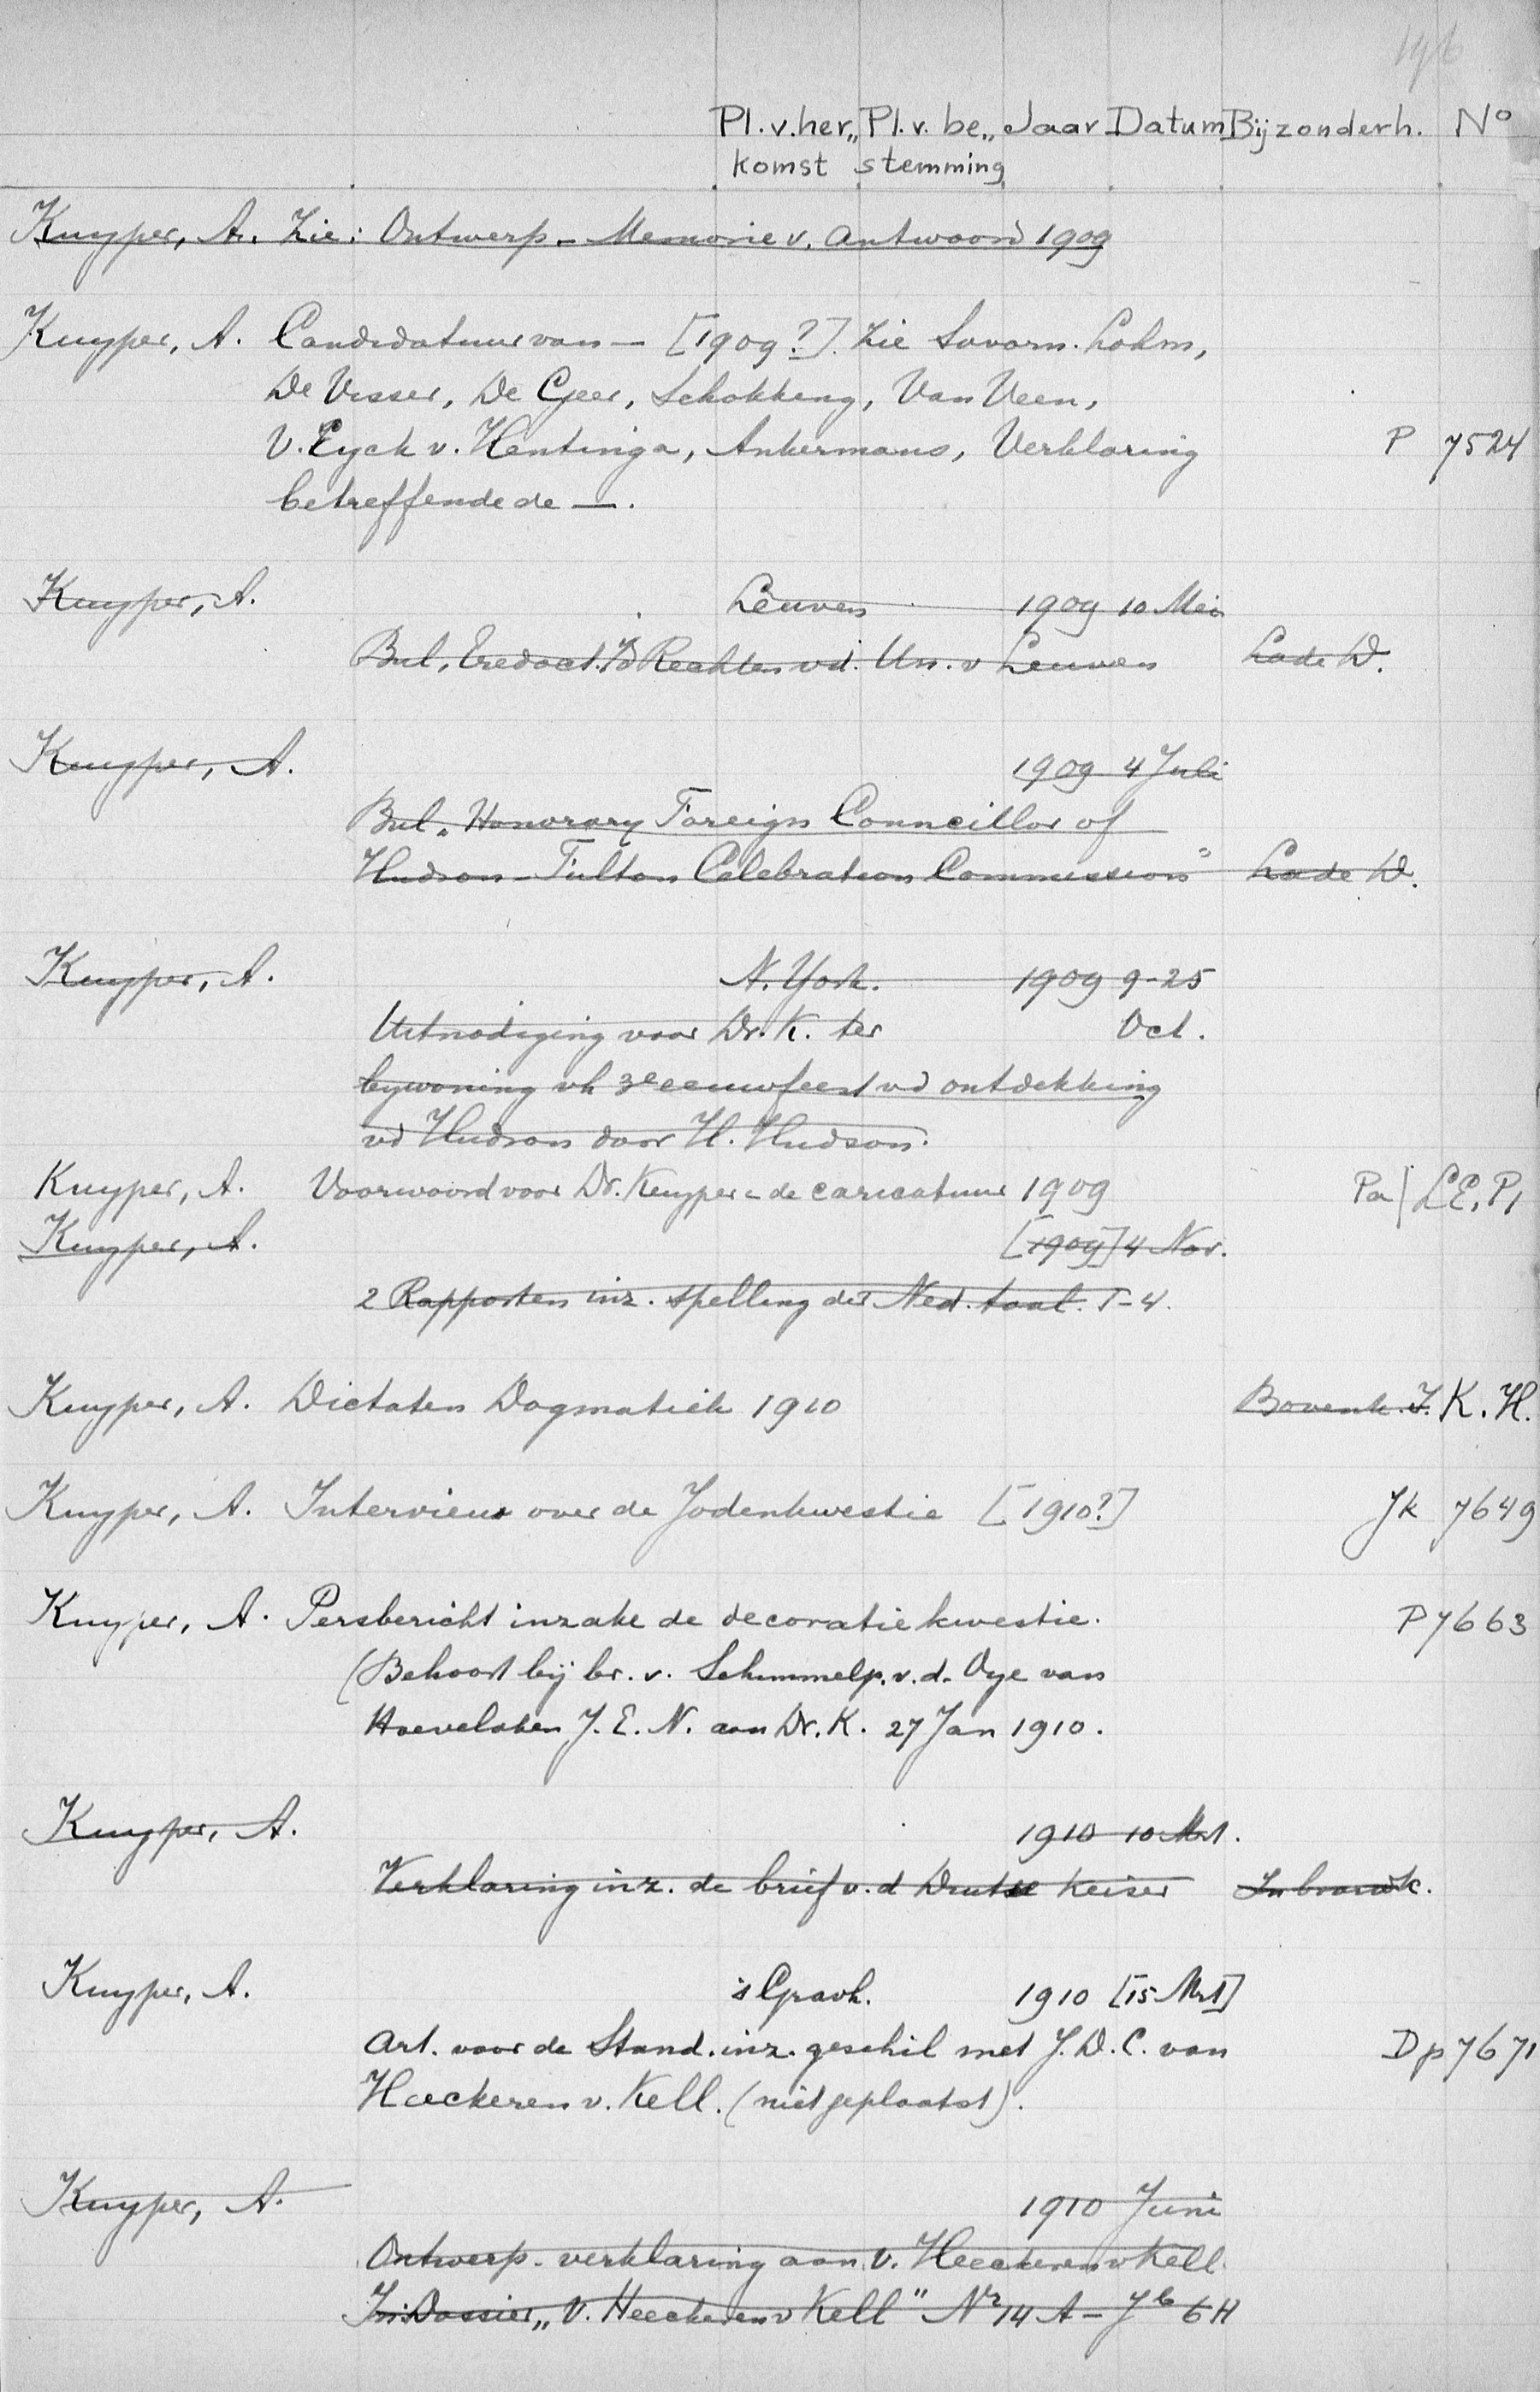 196
Pl. v. her„ Pl. v. be„ Jaar Datum Bijzonderh. No
komst stemming
Kuyper, A. Zie: Ontwerp-Memorie v. Antwoord 1909
Kuyper, A. Candidatuur van — [1909?]. Zie Savorn. Lohm,
De Visser, De Geer, Schokking, Van Veen,
V. Eyck v. Hentinga, Ankermans, Verklaring P 7524
betreffende de —.
Kuyper, A. Leuven 1909 10 Mei
Bul, Eredoct. Rechten v.d. Un. v Leuven Lade D.
Kuyper, A. 1909 4 Juli
Bul „Honorary Foreign Councillor of
Hudson-Fulton Celebration Commission" Lade D.
Kuyper, A. N. York. 1909 9-25
Uitnodiging voor Dr. K. ter Oct.
bijwoning vh 3e eeuwfeest vd ontdekking
vd Hudson door H. Hudson.
Kuyper, A. Voorwoord voor Dr. Kuyper - de caricatuur 1909 Pa | LE, P,
Kuyper, A. [1909] 4 Nov.
2 Rapporten inz. spelling der Ned. taal. T-4.
Kuyper, A. Dictaten Dogmatiek 1910 Bovenk. J. K. H.
Kuyper, A. Interview over de Jodenkwestie [1910?] Jk 7649
Kuyper, A. Persbericht inzake de decoratiekwestie. P 7663
(Behoort bij br. v. Schimmelp. v. d. Oye van
Hoevelaken J. E. N. aan Dr. K. 27 Jan 1910.
Kuyper, A. 1910 10 Mrt.
Verklaring inz. de brief v. d Duitse Keiser In brandk.
Kuyper, A. 's Gravh. 1910 [15 Mrt]
Art. voor de Stand. inz. geschil met J. D. C. van Dp 7671
Heeckeren v. Kell. (niet geplaatst).
Kuyper, A. 1910 Juni
Ontwerp-verklaring aan v. Heeckeren v Kell.
In: Dossier „V. Heeckeren v Kell" Nr 14 A - J b 6 H